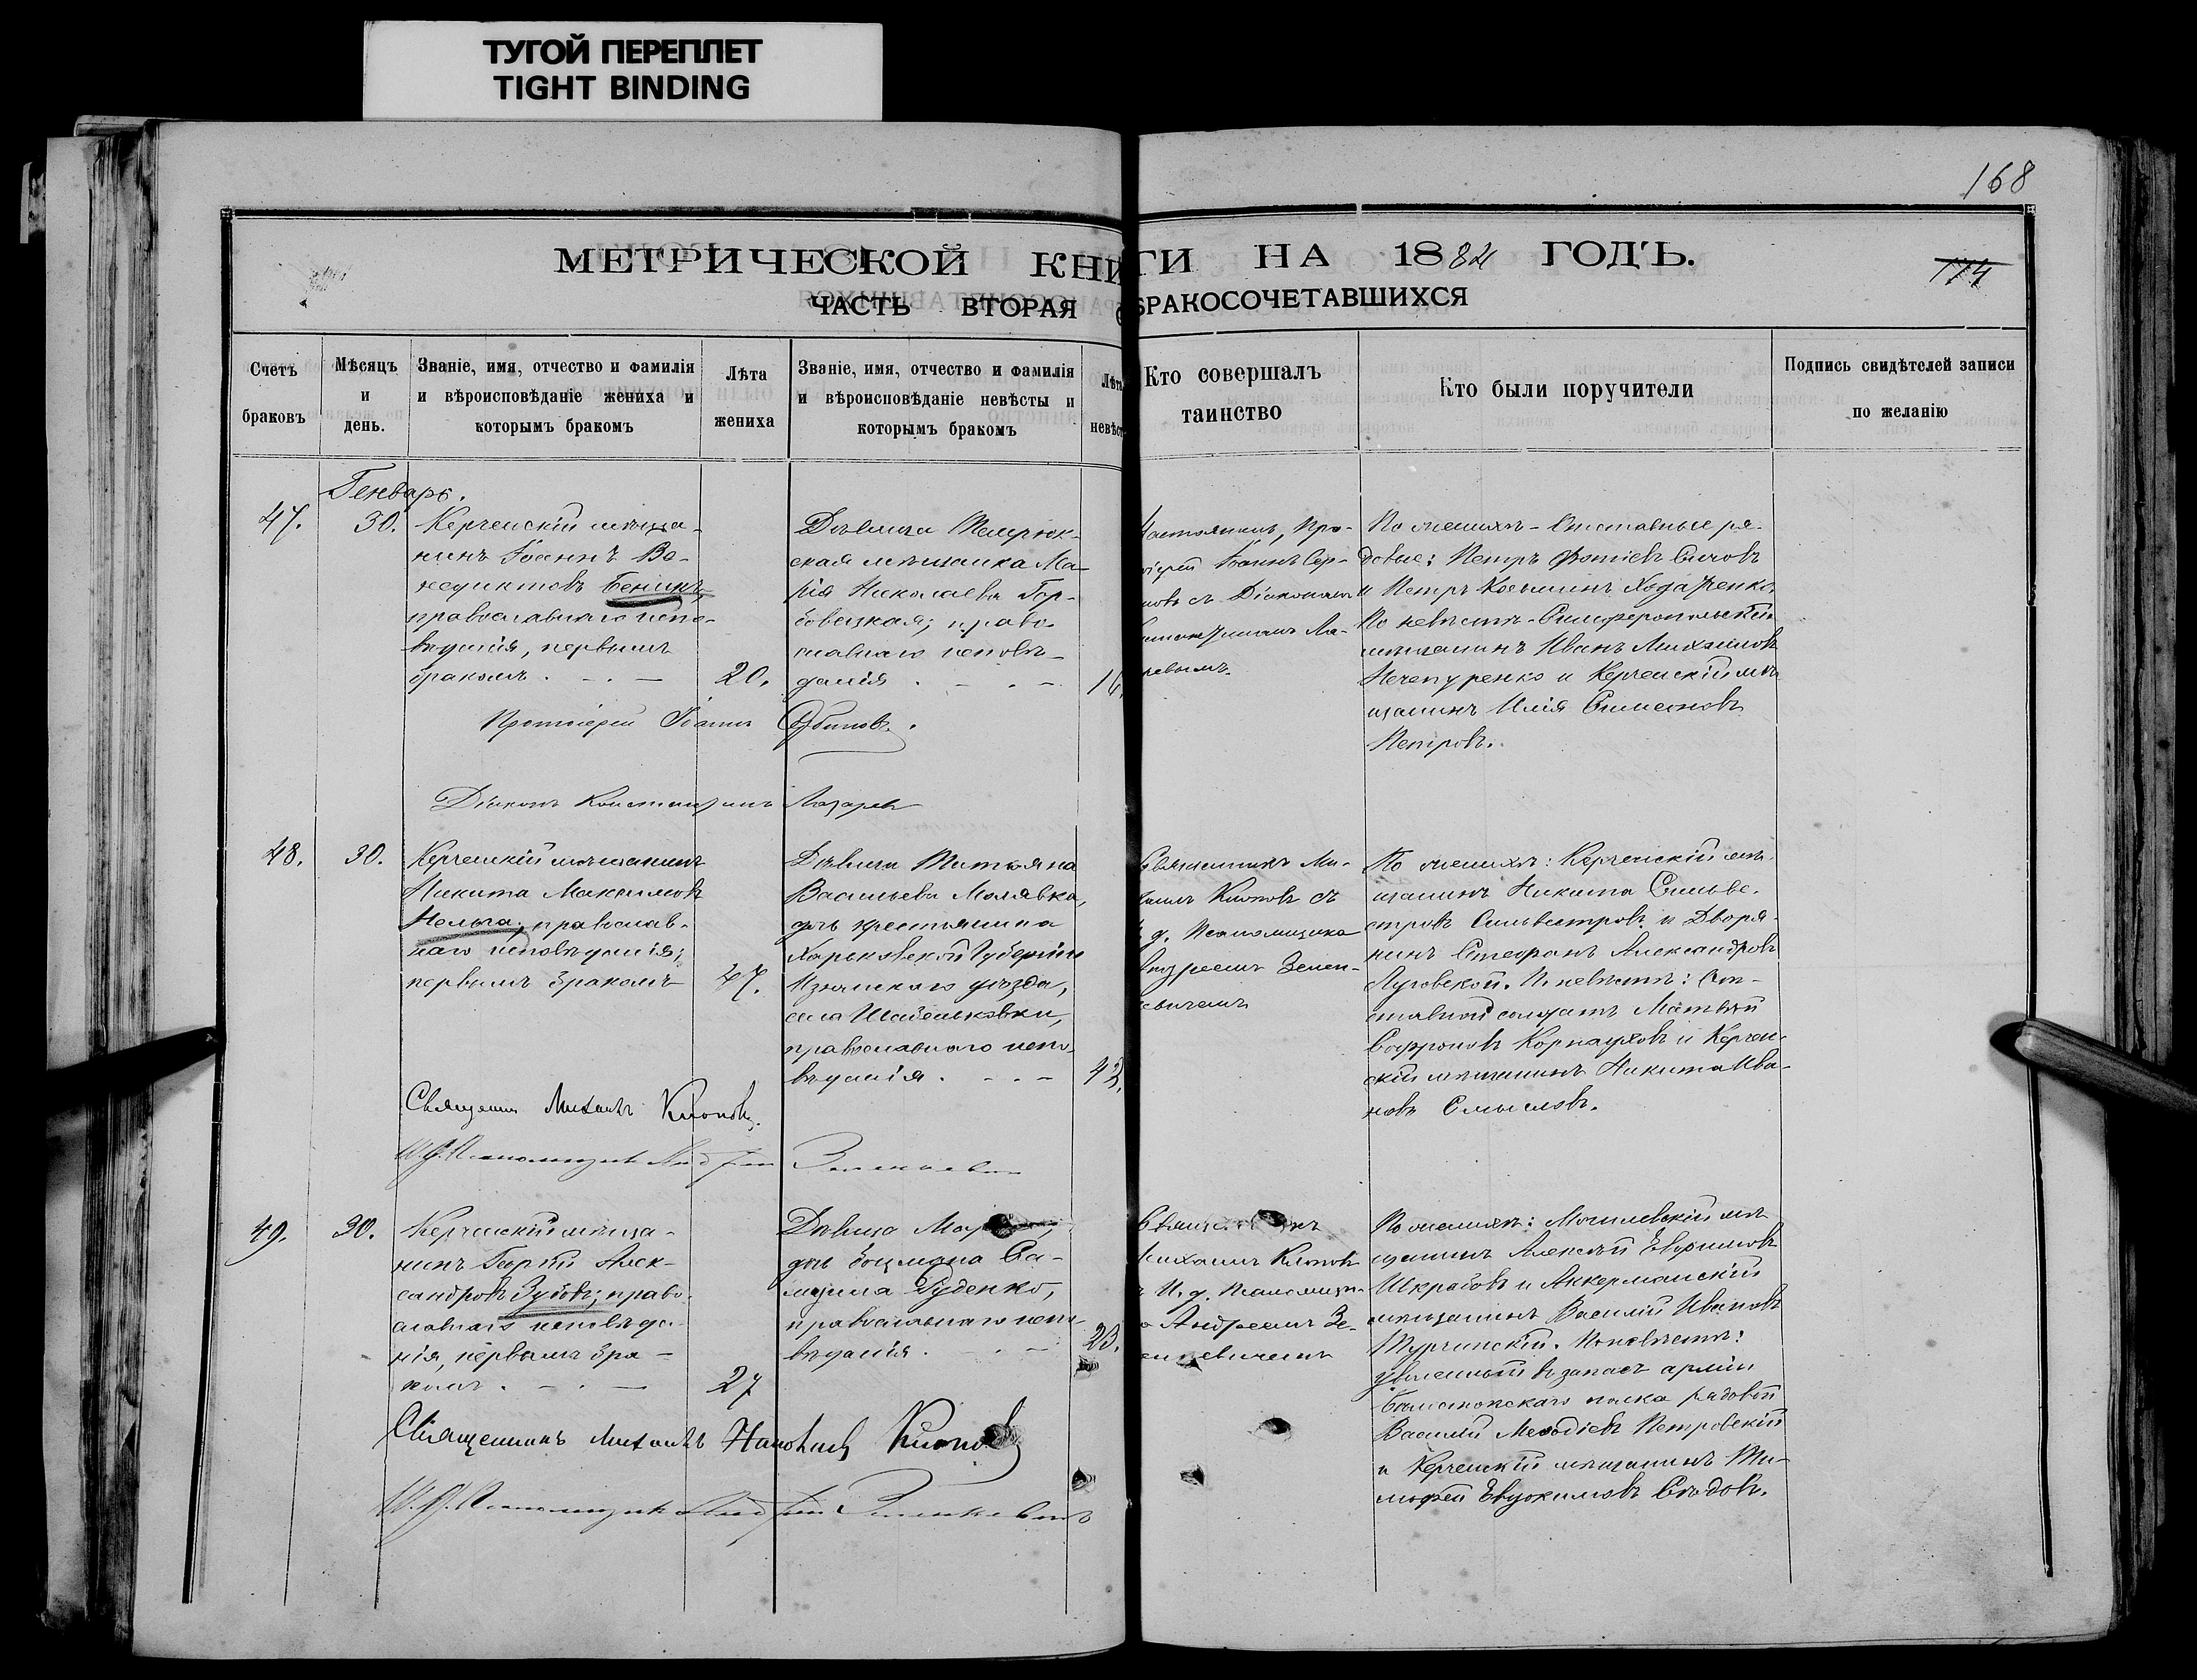 ТУГОЙ ПЕРЕПЛЕТ
TIGHT BINDING
168
МЕТРИЧЕСКОЙ КНИГИ НА 1882 ГОДЪ.
174
ЧАСТЬ ВТОРАЯ О БРАКОСОЧЕТАВШИХСЯ
Счетъ
браковъ
Мѣсяцъ
и
день.
Званіе, имя, отчество и фамилія
и вѣроисповѣданіе жениха и
которымъ бракомъ
Лѣта
жениха
Званіе, имя, отчество и фамилія
и вѣроисповѣданіе невѣсты и
которымъ бракомъ
Лѣта
невѣс
Кто совершалъ
таинство
Кто были поручители
Подпись свидѣтелей записи
по желанію
Генварь.
47.
30.
Керченскій мѣща-
нинъ Іоаннъ Ве-
недиктовъ Бенинъ,
православнаго испо-
вѣданія, первымъ
бракомъ
20.
Дѣвица Темрюк-
ская мѣщанка Ма-
рія Николаева Гор-
бовецкая; право-
славнаго исповѣ-
данія
16.
Настоятель, Про-
Іоаннъ Сер-
новъ съ Діакономъ
Ла-
ревымъ.
По женихѣ - Отставные ря-
довые: Петръ Фотіевъ Сычовъ
и Петръ Косьминъ Ходаренко.
По невѣстѣ - Симферопольскій
мѣщанинъ Иванъ Михайловъ
Нечепуренко и Керченскій мѣ-
щанинъ Илія Симеоновъ
Петровъ.
Протоіерей Іоаннъ Сербиновъ.
Діаконъ Константинъ Лазаревъ
48.
30.
Керченскій мѣщанинъ
Никита Максимовъ
Нельга, православ-
наго исповѣданія;
первымъ бракомъ
47.
Дѣвица Татьяна
Васильева Малявка,
дочь крестьянина
Харьковской Губерніи
Изюмскаго уѣзда,
села Шабельковки,
православнаго испо-
вѣданія.
42.
Священникъ Ми-
хаилъ Кіоповъ съ
д. Псаломщика
Андреемъ Зелен-
кевичемъ
По женихѣ: Керченскій мѣ-
щанинъ Никита Сильве-
стровъ Сильвестровъ и Дворя-
нинъ Стефанъ Александровъ
Луговской. По невѣстѣ: От-
ставной солдатъ Матвѣй
Софроновъ Карнауховъ и Керчен-
скій мѣщанинъ Никита Ива-
новъ Смысловъ.
Священникъ Михаилъ Кіоповъ.
И. Д. Псаломщика Андрей Зеленкевичъ
49.
30.
Керченскій мѣща-
нинъ Георгій Алек-
сандровъ Зубовъ; право-
славнаго исповѣда-
нія, первымъ бра-
комъ
27
Дѣвица Мар
дочь боцмана Са-
Руденко,
православнаго испо-
вѣданія.
23.
Священникъ
Михаилъ Кіоповъ
И. д. Псаломщи-
Андреемъ Зе-
кевичемъ
По женихѣ: Могилевскій мѣ-
щанинъ Алексѣй Евфимовъ
Шкрабовъ и Аккерманскій
мѣщанинъ Василій Ивановъ
Турчинскій. По невѣстѣ:
уволенный въ запасъ арміи
полка рядовой
Василій Меѳодіевъ Петровскій
и Керченскій мѣщанинъ Ти-
мофей Евдокимовъ Сѣдовъ.
Священникъ Михаилъ Кіоповъ
И. Д. Псаломщика Андрей Зеленкевичъ